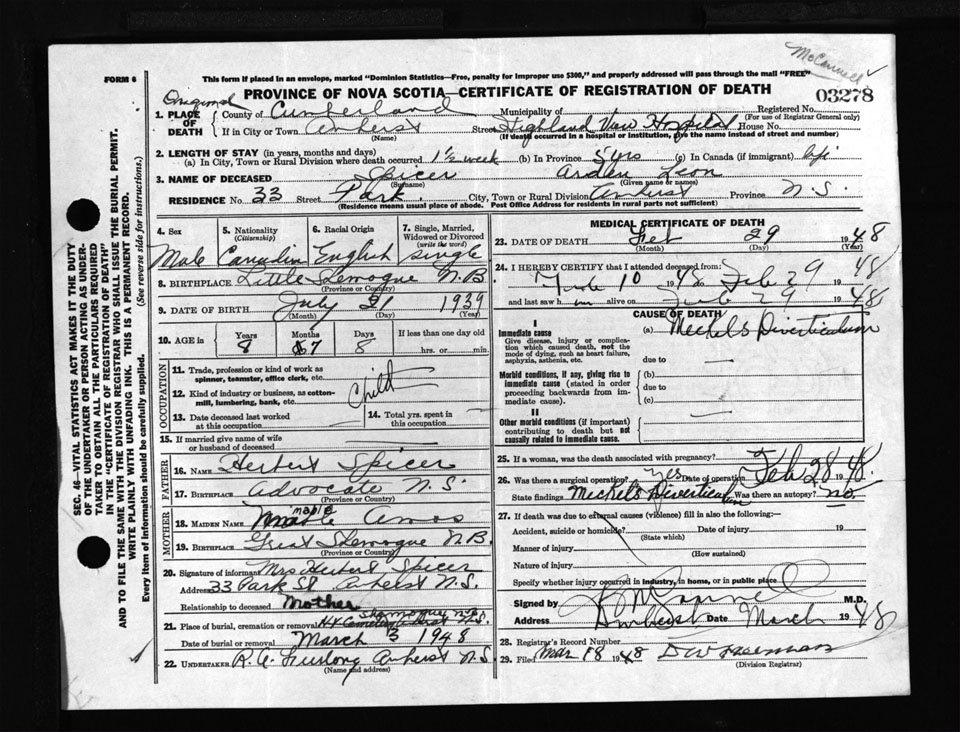 McConnell
FORM 6
This form if placed in an envelope, marked "Dominion Statistics—Free, penalty for improper use $300," and properly addressed will pass through the mail "FREE"
PROVINCE OF NOVA SCOTIA—CERTIFICATE OF REGISTRATION OF DEATH
03278
Original
1. PLACE OF DEATH County of Cumberland Municipality of Registered No.
(For use of Registrar General only)
If in City or Town Amherst Street Highland View Hospital House No.
(Name) (If death occurred in a hospital or institution, give the name instead of street and number)
2. LENGTH OF STAY (in years, months and days)
(a) In City, Town or Rural Division where death occurred 1½ week (b) In Province 5 yrs (c) In Canada (if immigrant) life
3. NAME OF DECEASED Spicer Arden Leon
(Surname) (Given name or names)
RESIDENCE No. 33 Street Park City, Town or Rural Division Amherst Province N.S.
(Residence means usual place of abode. Post Office Address for residents in rural parts not sufficient)
4. Sex 5. Nationality (Citizenship) 6. Racial Origin 7. Single, Married, Widowed or Divorced (write the word)
Male Canadin English single
8. BIRTHPLACE Little Shemogue N.B
(Province or Country)
9. DATE OF BIRTH July 21 1939
(Month) (Day) (Year)
10. AGE in Years Months Days If less than one day old
8 7 8 hrs. or min.
OCCUPATION
11. Trade, profession or kind of work as spinner, teamster, office clerk, etc.
Child
12. Kind of industry or business, as cotton-mill, lumbering, bank, etc.
13. Date deceased last worked at this occupation
14. Total yrs. spent in this occupation
15. If married give name of wife or husband of deceased
FATHER
16. NAME Herbert Spicer
17. BIRTHPLACE Advocate N.S.
(Province or Country)
MOTHER
18. MAIDEN NAME Mable Amos
19. BIRTHPLACE Great Shemogue N.B.
(Province or Country)
20. Signature of informant Mrs Herbert Spicer
Address 33 Park St Amherst N.S.
Relationship to deceased Mother
21. Place of burial, cremation or removal Shemogue N.B.
Date of burial or removal March 3 1948
22. UNDERTAKER R. A. Furlong Amherst N.S
(Name and address)
MEDICAL CERTIFICATE OF DEATH
23. DATE OF DEATH Feb 29 1948
(Month) (Day) (Year)
24. I HEREBY CERTIFY that I attended deceased from:
10 1948 to Feb 29 1948
and last saw him alive on Feb 29 1948
CAUSE OF DEATH
I
Immediate cause (a) Meckels Diverticulum
Give disease, injury or complication which caused death, not the mode of dying, such as heart failure, asphyxia, asthenia, etc.
due to
Morbid conditions, if any, giving rise to immediate cause (stated in order proceeding backwards from immediate cause).
(b)
due to
(c)
II
Other morbid conditions (if important) contributing to death but not causally related to immediate cause.
25. If a woman, was the death associated with pregnancy?
26. Was there a surgical operation? yes Date of operation Feb 28 1948.
State findings Meckels Diverticulum Was there an autopsy? no
27. If death was due to external causes (violence) fill in also the following:—
Accident, suicide or homicide? Date of injury 19
(State which)
Manner of injury
(How sustained)
Nature of injury
Specify whether injury occurred in industry, in home, or in public place
Signed by M.D.
Address Amherst Date March 1948
28. Registrar's Record Number
29. Filed Mar 18 1948
(Division Registrar)
SEC. 46—VITAL STATISTICS ACT MAKES IT THE DUTY
OF THE UNDERTAKER OR PERSON ACTING AS UNDER-
TAKER TO OBTAIN ALL THE PARTICULARS REQUIRED
IN THE "CERTIFICATE OF REGISTRATION OF DEATH"
AND TO FILE THE SAME WITH THE DIVISION REGISTRAR WHO SHALL ISSUE THE BURIAL PERMIT.
WRITE PLAINLY WITH UNFADING INK. THIS IS A PERMANENT RECORD.
Every item of information should be carefully supplied. (See reverse side for instructions.)